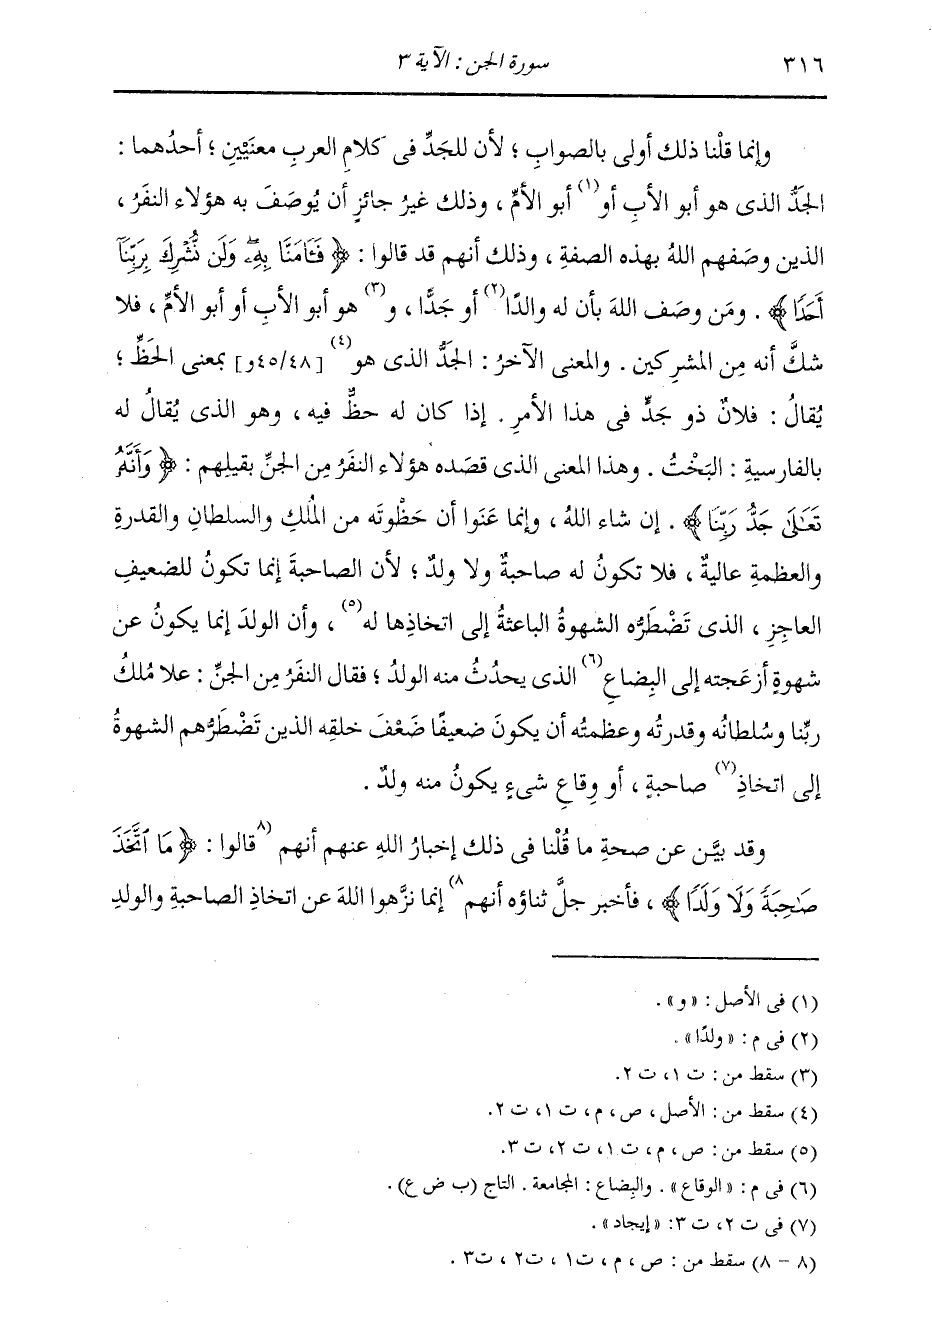 ٣١٦ سورة الجن : الآية ٣
وإنما قلْنا ذلك أولى بالصوابِ ؛ لأن للجَدِّ فى كلامِ العربِ معنَيَيْنِ ؛ أحدُهما :
الجَدُّ الذى هو أبو الأبِ أو(١) أبو الأمِّ ، وذلك غيرُ جائزٍ أن يُوصَفَ به هؤلاء النفَرُ ،
الذين وصَفهم اللهُ بهذه الصفةِ ، وذلك أنهم قد قالوا : ﴿ فَـَٔامَنَّا بِهِۦۖ وَلَن نُّشْرِكَ بِرَبِّنَآ
أَحَدًا ﴾ . ومَن وصَف اللهَ بأن له والدًا(٢) أو جَدًّا ، و(٣) هو أبو الأبِ أو أبو الأمِّ ، فلا
شكَّ أنه مِن المشرِكين . والمعنى الآخرُ : الجَدُّ الذى هو(٤) [٤٥/٤٨و] بمعنى الحَظِّ ؛
يُقالُ : فلانٌ ذو جَدٍّ فى هذا الأمرِ . إذا كان له حظٌّ فيه ، وهو الذى يُقالُ له
بالفارسيةِ : البَخْتُ . وهذا المعنى الذى قصَده هؤلاء النفَرُ مِن الجنِّ بقيلِهم : ﴿ وَأَنَّهُۥ
تَعَـٰلَىٰ جَدُّ رَبِّنَا ﴾ . إن شاء اللهُ ، وإنما عَنَوا أن حَظْوتَه من المُلكِ والسلطانِ والقدرةِ
والعظمةِ عاليةٌ ، فلا تكونُ له صاحبةٌ ولا ولدٌ ؛ لأن الصاحبةَ إنما تكونُ للضعيفِ
العاجزِ ، الذى تَضْطَرُّه الشهوةُ الباعثةُ إلى اتخاذِها له(٥) ، وأن الولدَ إنما يكونُ عن
شهوةٍ أزعَجته إلى البِضاعِ(٦) الذى يحدُثُ منه الولدُ ؛ فقال النفَرُ مِن الجنِّ : علا مُلكُ
ربِّنا وسُلطانُه وقدرتُه وعظمتُه أن يكونَ ضعيفًا ضَعْفَ خلقِه الذين تَضْطَرُّهم الشهوةُ
إلى اتخاذِ(٧) صاحبةٍ ، أو وِقاعِ شىءٍ يكونُ منه ولدٌ .
وقد بيَّن عن صحةِ ما قُلْنا فى ذلك إخبارُ اللهِ عنهم أنهم (٨قالوا : ﴿ مَا ٱتَّخَذَ
صَـٰحِبَةً وَلَا وَلَدًا ﴾ ، فأخبر جلَّ ثناؤه أنهم٨) إنما نزَّهوا اللهَ عن اتخاذِ الصاحبةِ والولدِ
(١) فى الأصل : « و » .
(٢) فى م : « ولدًا » .
(٣) سقط من : ت ١، ت ٢.
(٤) سقط من : الأصل ، ص ، م ، ت ١، ت ٢.
(٥) سقط من : ص ، م ، ت ١، ت ٢، ت ٣.
(٦) فى م : « الوقاع » . والبِضاع : المجامعة . التاج (ب ض ع) .
(٧) فى ت ٢، ت ٣: « إيجاد » .
(٨ - ٨) سقط من : ص ، م ، ت١ ، ت٢ ، ت٣ .